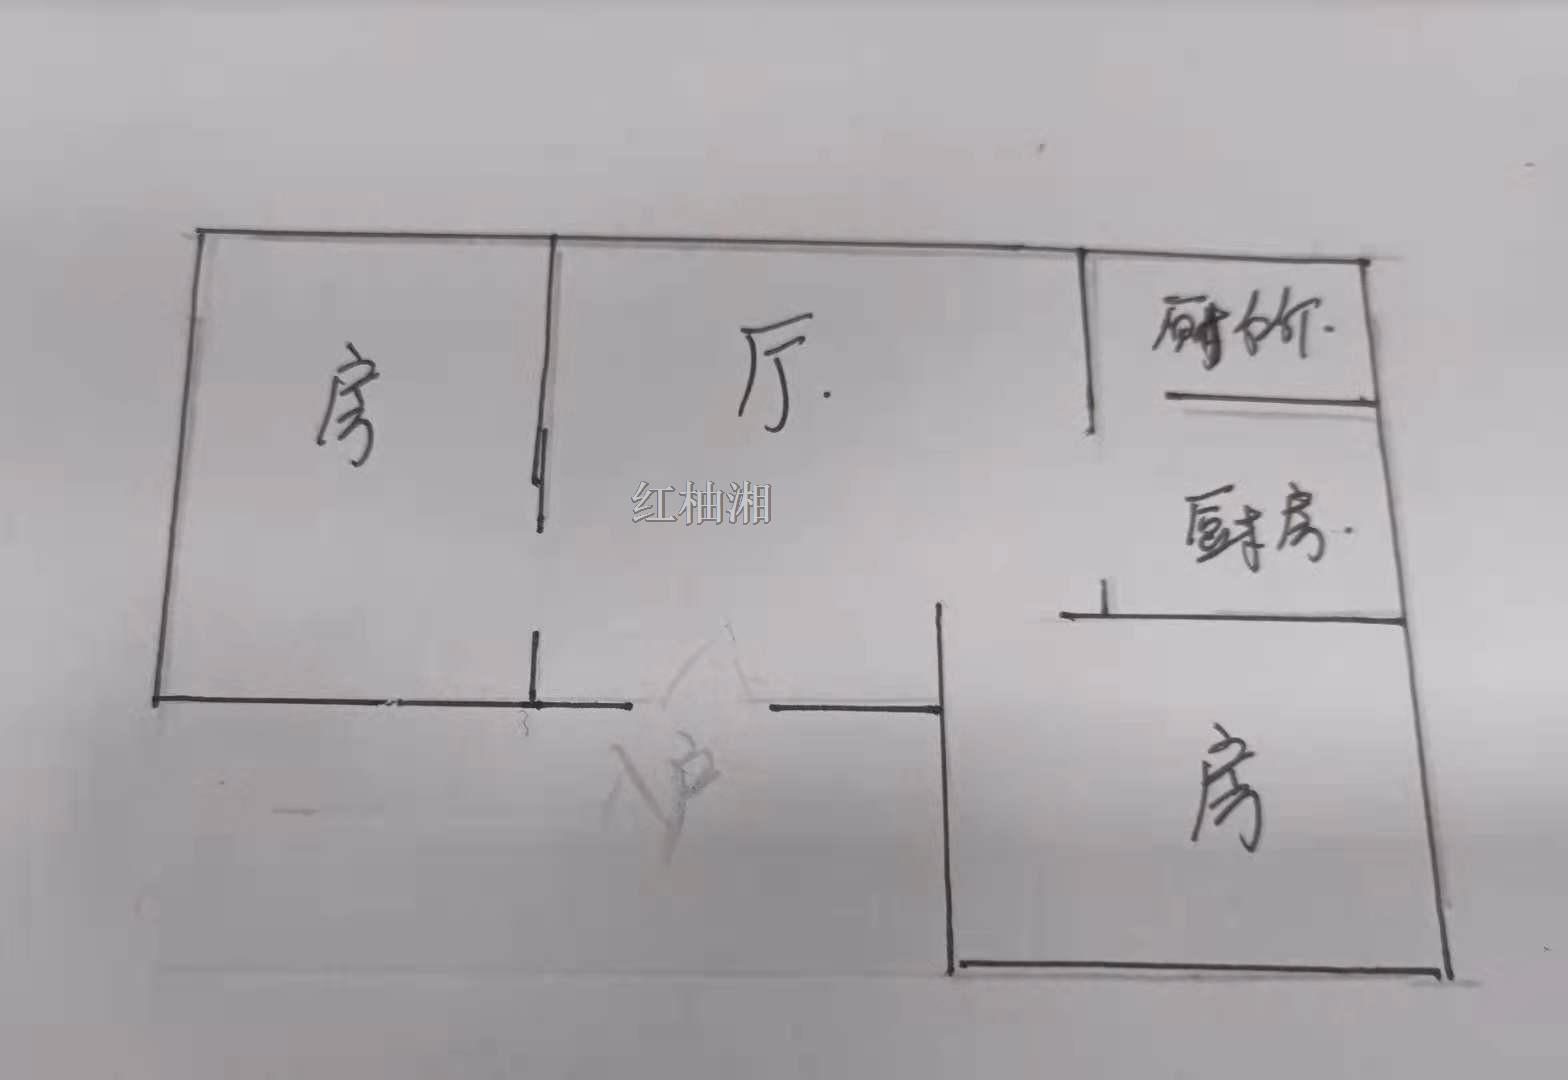 房
厅.
厨房.
红柚湘
入户
房